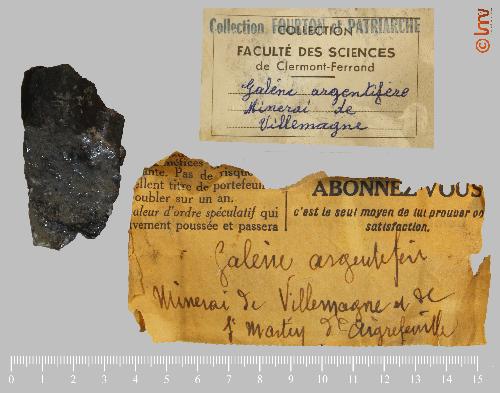 Collection FOURTON et PATRIARCHE
COLLECTION
FACULTÉ DES SCIENCES
de Clermont-Ferrand
Galène argentifère
Minerai de
Villemagne
© lmv
méfices
ante. Pas de risque
ellent titre de portefeui
oubler sur un an.
aleur d'ordre spéculatif qui
vement poussée et passera
ABONNEZ-VOUS
c'est le seul moyen de lui prouver
satisfaction.
Galène argentifèr
Minerai de Villemagne et de
St Martin d'Aigrefeuille
0 1 2 3 4 5 6 7 8 9 10 11 12 13 14 15